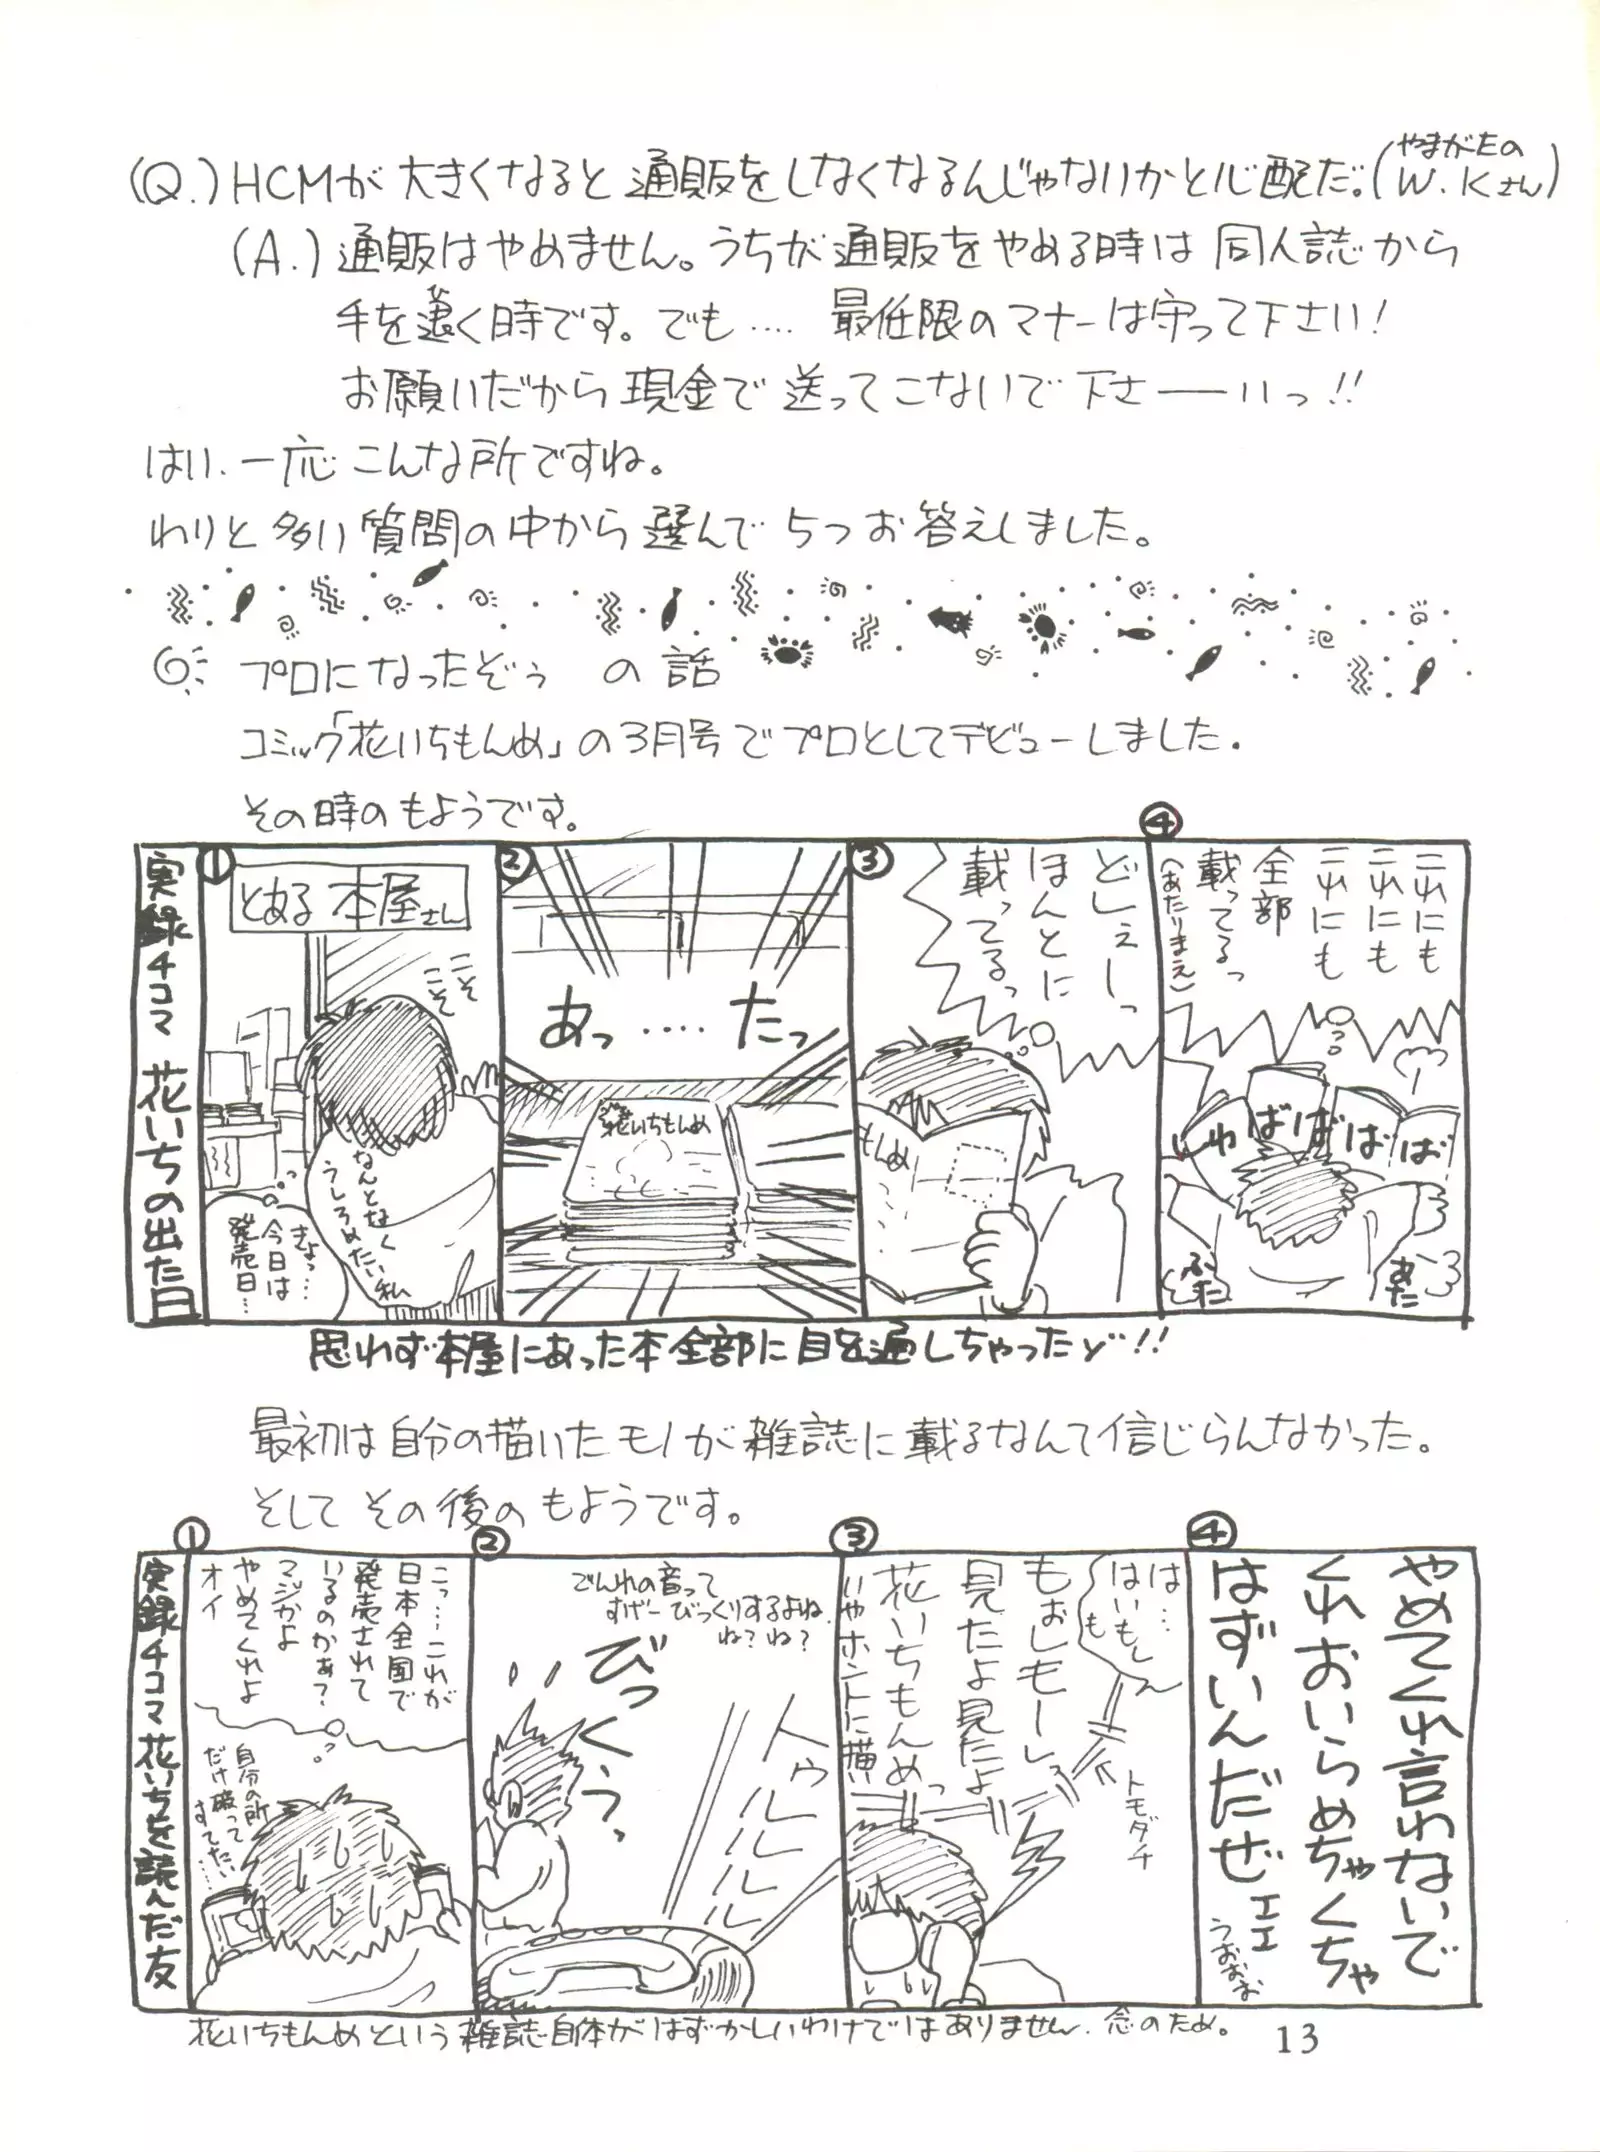 (Q.) HCMが大きくなると通販をしなくなるんじゃないかと心配だ。(やまがたの W.Kさん)
(A.) 通販はやめません。うちが通販をやめる時は同人誌から
手を引く時です。でも‥‥最低限のマナーは守って下さい!
お願いだから現金で送ってこないで下さーーいっ!!
はい、一応こんな所ですね。
わりと多い質問の中から選んで5つお答えしました。
プロになったぞぅ の話
コミック「花いちもんめ」の3月号でプロとしてデビューしました.
その時のもようです。
実録4コマ 花いちの出た日
①
とある本屋さん
こそ
こそ
なんとなく
うしろめたい私
きょっ…
今日は
発売日…
②
あっ‥‥たっ
花いちもんめ
③
どしぇーっ
ほんとに
載ってるっ
もんめ
④
これにも
これにも
これにも
全部
載ってるっ
(あたりまえ)
しゅばばばば
ふた
あた
思わず本屋にあった本全部に目を通しちゃったゾ!!
最初は自分の描いたモノが雑誌に載るなんて信じらんなかった。
そして その後のもようです。
実録4コマ 花いちを読んだ友
①
こっ…これが
日本全国で
発売されて
いるのかぁ?
マジかよ
やめてくれよ
オイ
自分の所
だけ破って
すてたい…
②
でんわの音って
すげーびっくりするよね
ね?ね?
びっくぅっ
トゥルルルルル
③
は…
はいもし
も
もぉしもーしっ
見たよ見たよ
花いちもんめっ
いやホントに描
トモダチ
④
やめてくれ言わないで
くれおいらめちゃくちゃ
はずいんだぜ
エエ
うおおお
花いちもんめという雑誌自体がはずかしいわけではありません. 念のため。
13